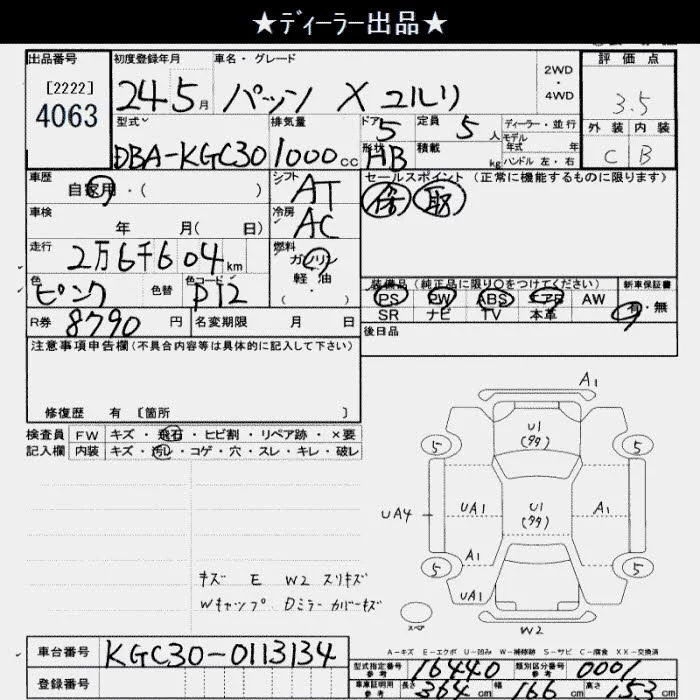 ★ディーラー出品★
出品番号 初度登録年月 車名・グレード 2WD・4WD 評価点
[2222] 4063 24 5月 パッソ X ユルリ 3.5
型式 排気量 ドア 5 定員 5人 ディーラー・並行 外装 内装
モデル年式 年
DBA-KGC30 1000cc 形状 HB 積載 kg ハンドル 左・右 C B
車歴 シフト セールスポイント (正常に機能するものに限ります)
自家用・( ) AT 保 取
車検 冷房
年 月( 日) AC
走行 燃料
2万6千604km ガソリン
軽油
( )
色 色替 色コード 装備品(純正品に限り○をつけてください) 新車保証書
ピンク P12 PS PW ABS エアB AW 有・無
R券 8790円 名変期限 月 日 SR ナビ TV 本革
注意事項申告欄(不具合内容等は具体的に記入して下さい) 後日品
修復歴 有 〔箇所 〕
検査員 FW キズ・飛石・ヒビ割・リペア跡・×要
記入欄 内装 キズ・汚レ・コゲ・穴・スレ・キレ・破レ
A1
U1
(タタ)
5 5
UA4 UA1 U1 A1
(タタ)
A1
5 5
UA1
スペア W2
キズ E W2 スリキズ
Wキャップ Dミラーカバーキズ
A-キズ E-エクボ U-凹み W-補修跡 S-サビ C-腐食 XX-交換済
車台番号 KGC30-0113134
型式指定番号 参考 16440 類別区分番号 参考 0001
登録番号 車庫証明用 参考 長さ 364cm 幅 166cm 高さ 153cm